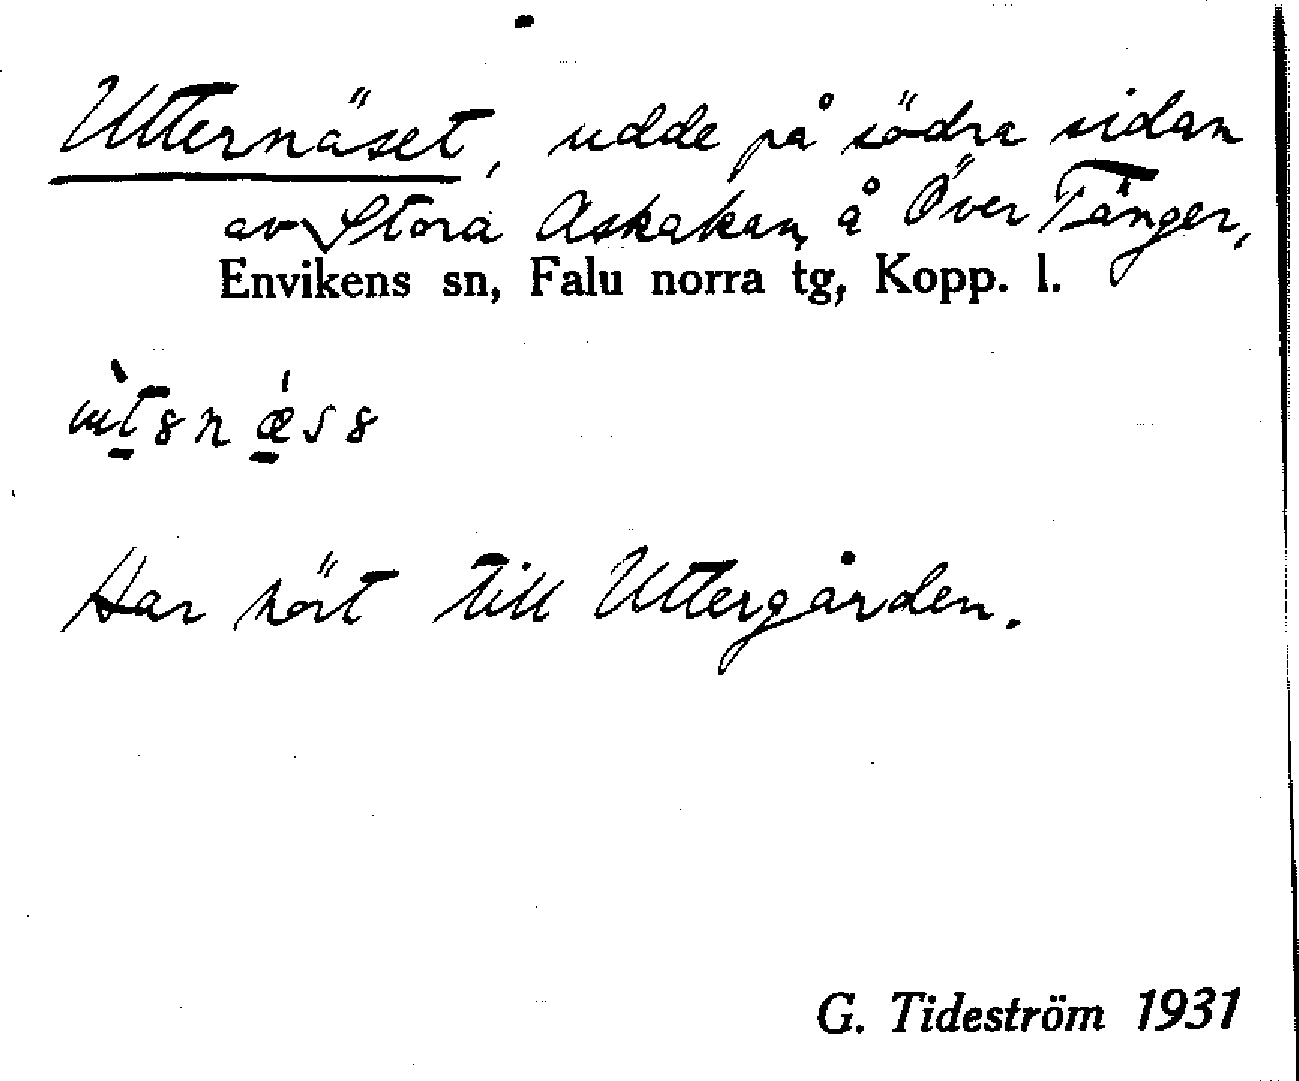 Utternäset, udde på södra sidan
av Stora Askakan, å Över Tänger,
Envikens sn, Falu norra tg, Kopp. l.
Har hört till Uttergården.
G. Tideström 1931